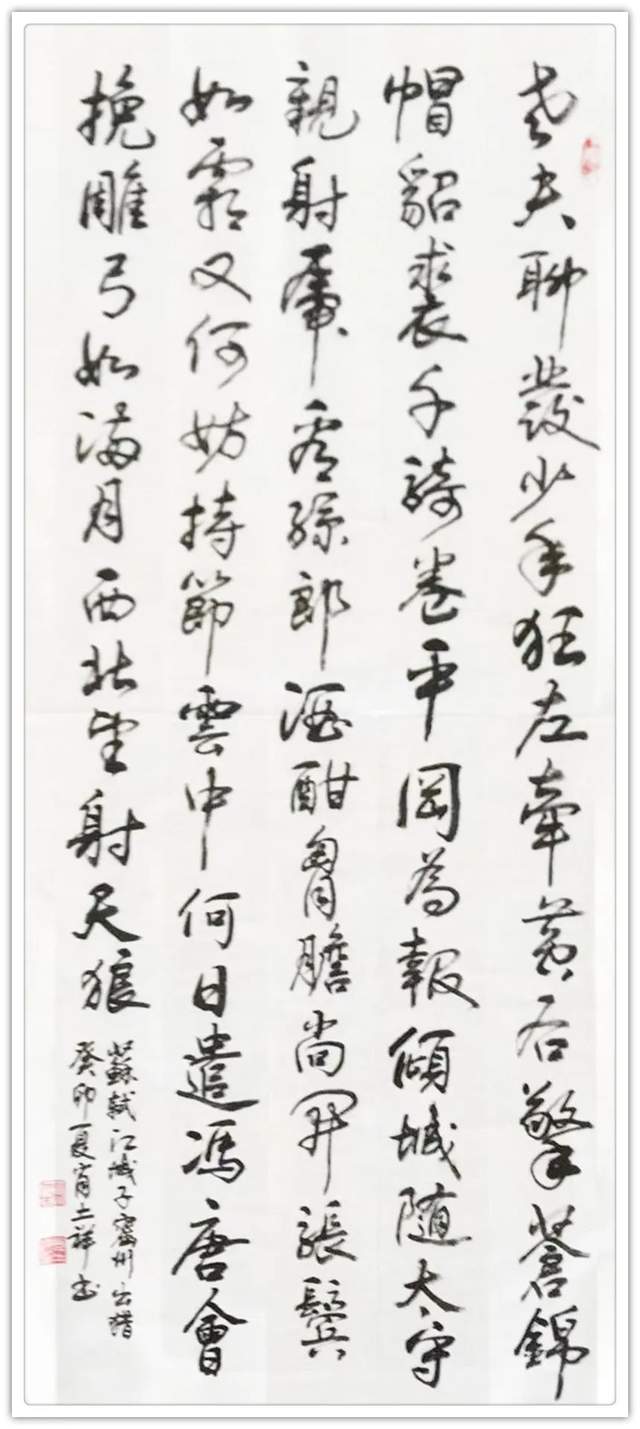 老夫聊發少年狂左牽黃右擎蒼錦
帽貂裘千騎卷平岡為報傾城随太守
親射虎看孫郎酒酣胷膽尚開張鬢
如霜又何妨持節雲中何日遣馮唐會
挽雕弓如滿月西北望射天狼
蘇軾江城子密州出猎
癸卯夏肖土祥书